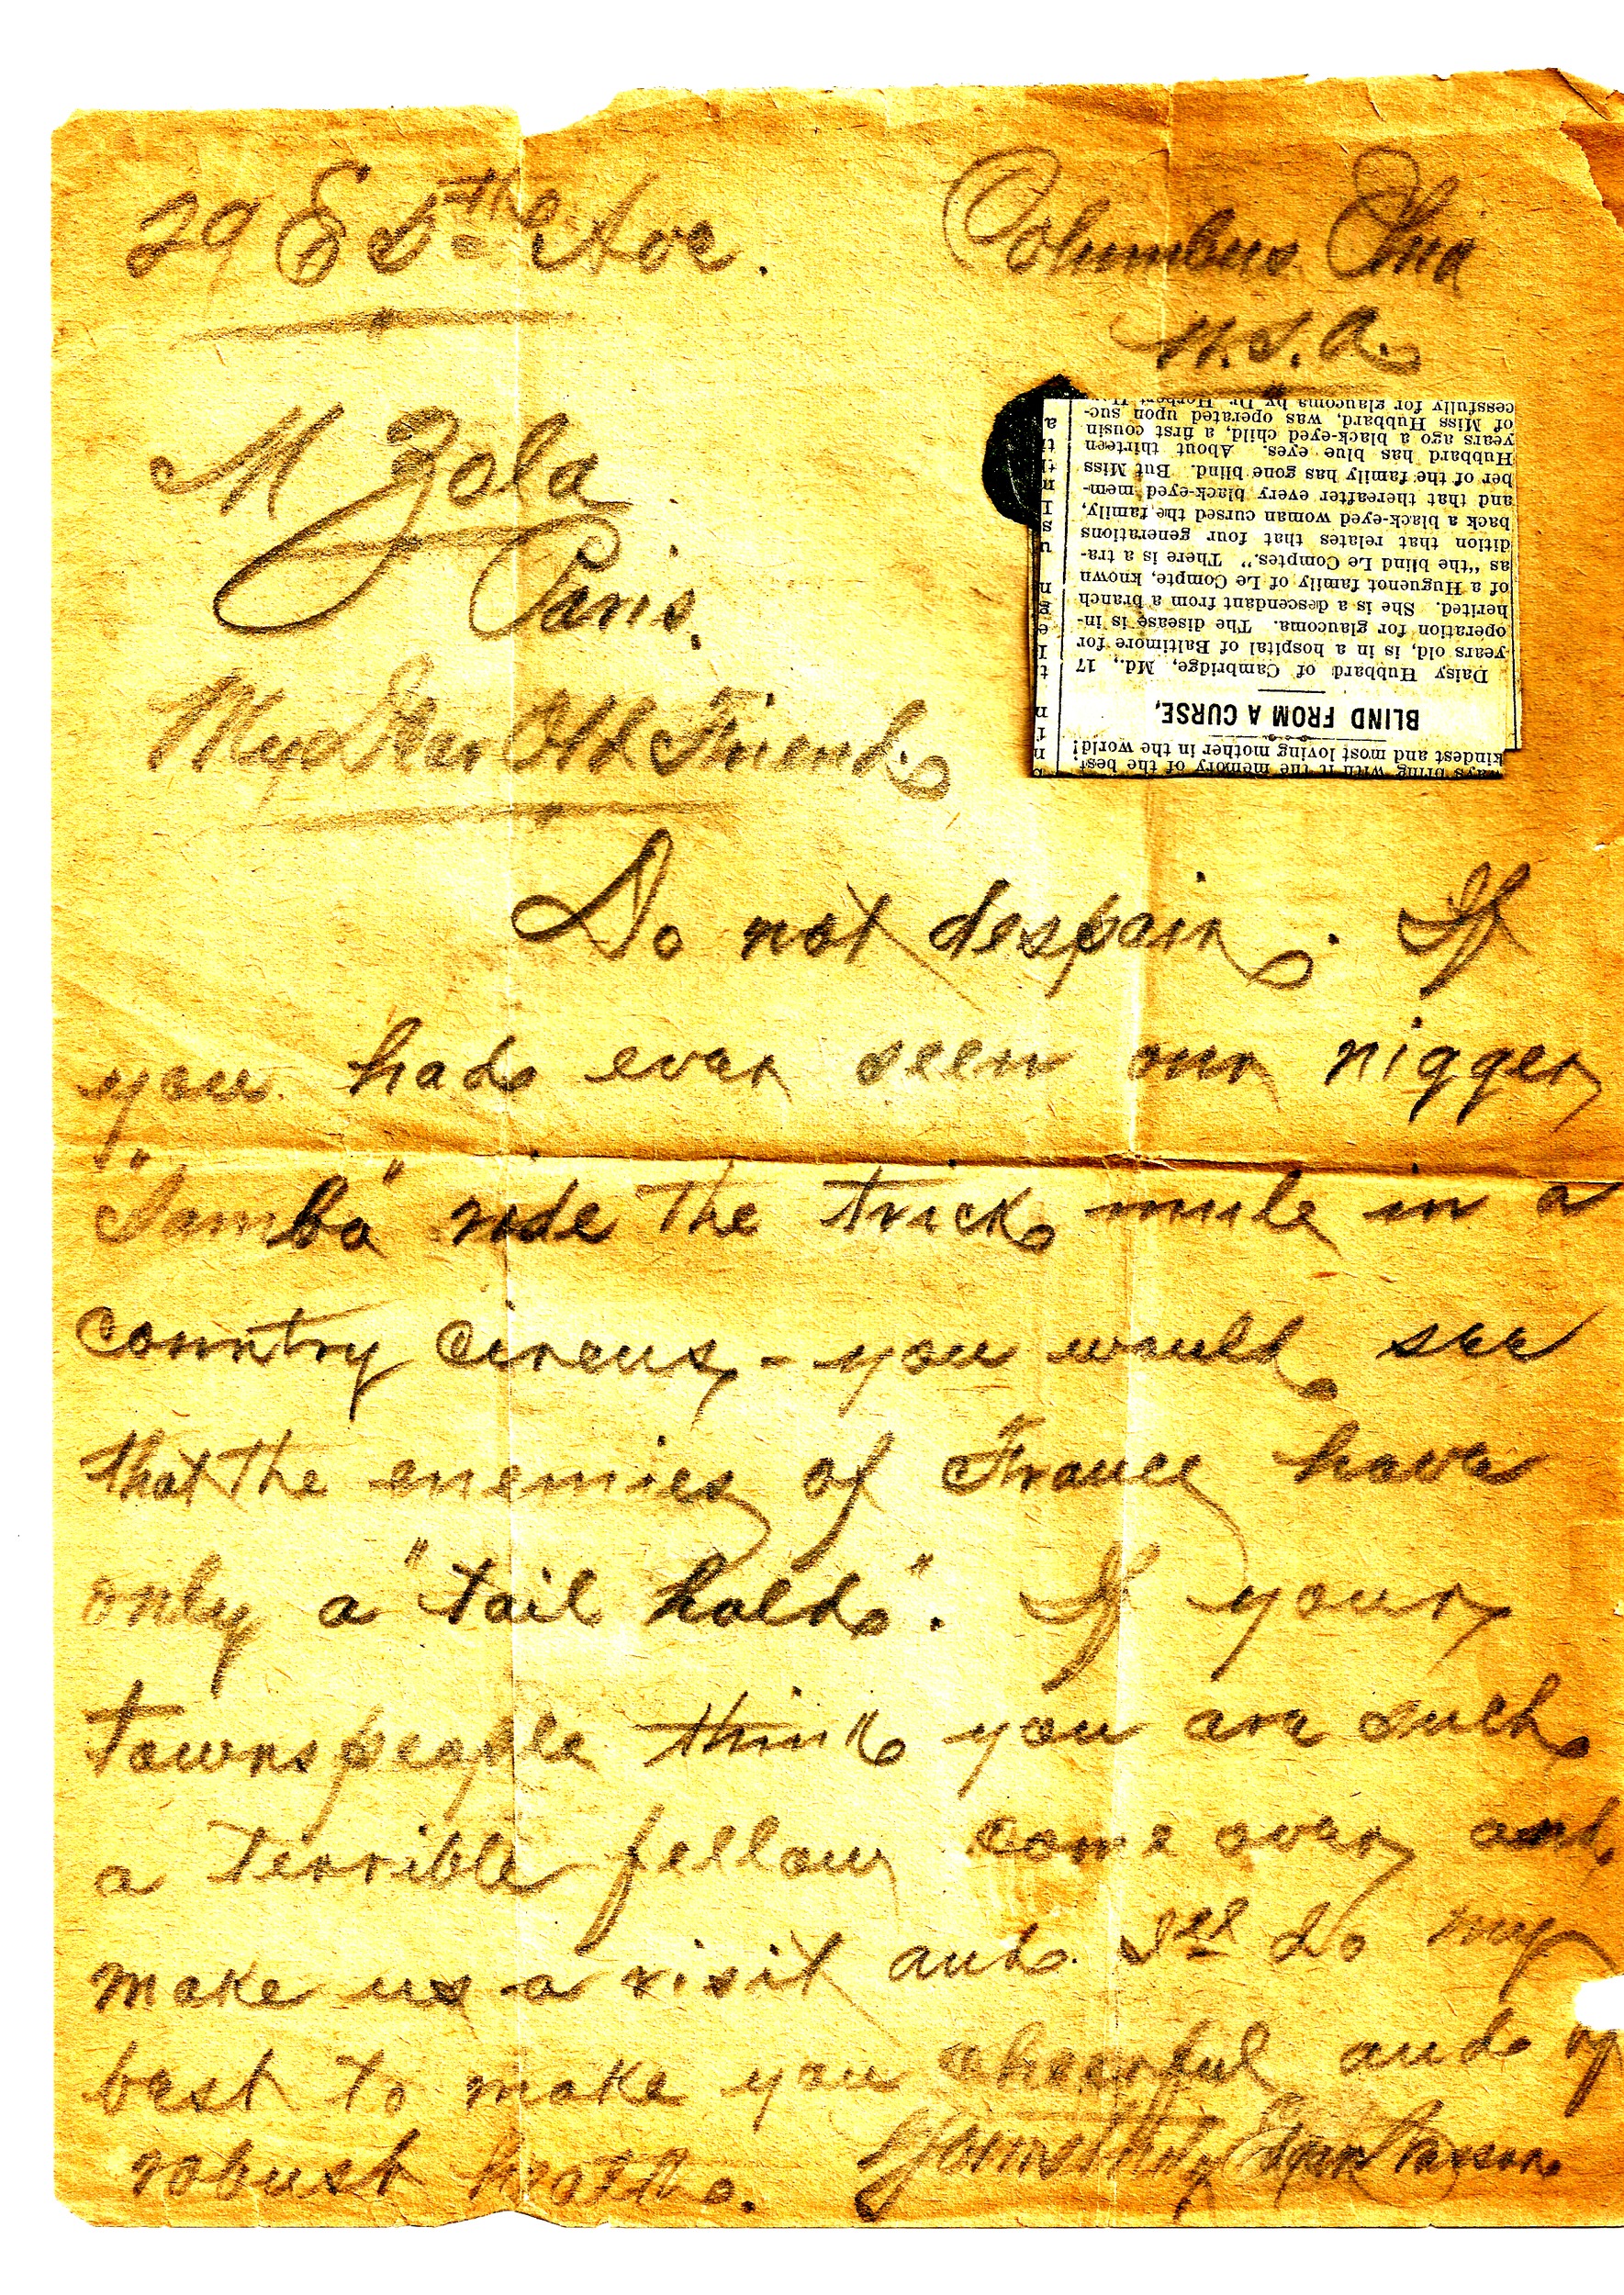 29 E 5th Ave.
Columbus Ohio
U.S.A.
M Zola
Paris.
My Dear Old Friend.
cessfully for glaucoma by Dr. Herbert
of Miss Hubbard, was operated upon suc-
years ago a black-eyed child, a first cousin
Hubbard has blue eyes. About thirteen
ber of the family has gone blind. But Miss
and that thereafter every black-eyed mem-
back a black-eyed woman cursed the family,
dition that relates that four generations
as "the blind Le Comptes." There is a tra-
of a Huguenot family of Le Compte, known
herited. She is a descendant from a branch
operation for glaucoma. The disease is in-
years old, is in a hospital of Baltimore for
Daisy Hubbard of Cambridge, Md., 17
BLIND FROM A CURSE.
kindest and most loving mother in the world!
ways bring with it the memory of the best
Do not despair. If
you had ever seen our nigger
"Sambo" ride the trick mule in a
country circus - you would see
that the enemies of France have
only a "tail hold". If your
townspeople think you are such
a terrible fellow come over and
make us a visit and I'll do my
best to make you cheerful and of
robust health. Yours truly Edgar